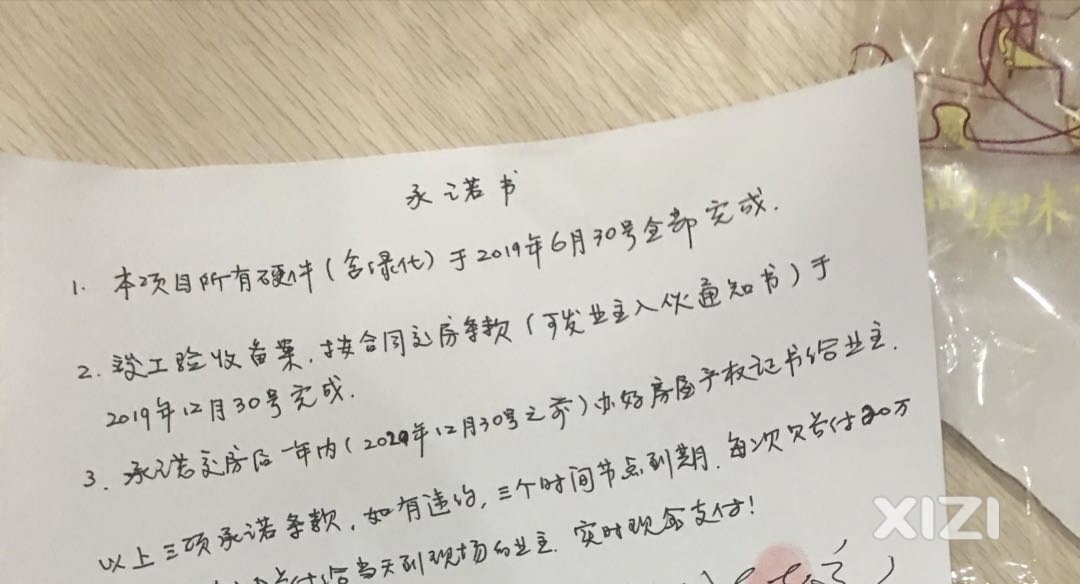 承诺书
1. 本项目所有硬件(含绿化)于2019年6月30号全部完成.
2. 竣工验收备案,按合同交房条款(可发业主入伙通知书)于
2019年12月30号完成.
3. 承诺交房后一年内(2020年12月30号之前)办好房屋产权证书给业主.
以上三项承诺条款,如有违约,三个时间节点到期,每次欠付20万
当天到现场的业主.实时现金支付!
XIZI